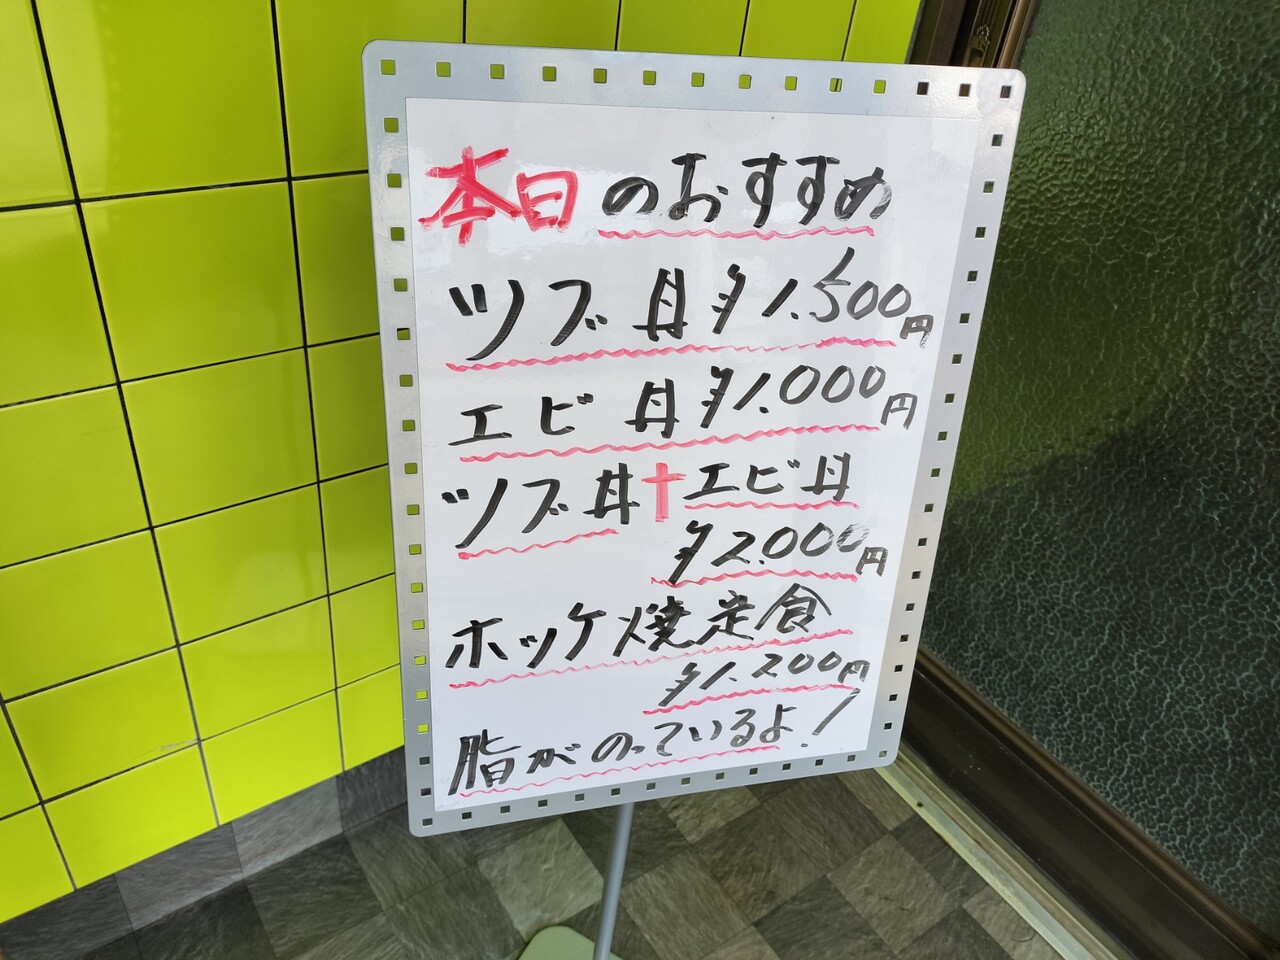 本日のおすすめ
ツブ丼 ¥1.500円
エビ丼 ¥1.000円
ツブ丼+エビ丼
¥2.000円
ホッケ焼定食
¥1.200円
脂がのっているよ!